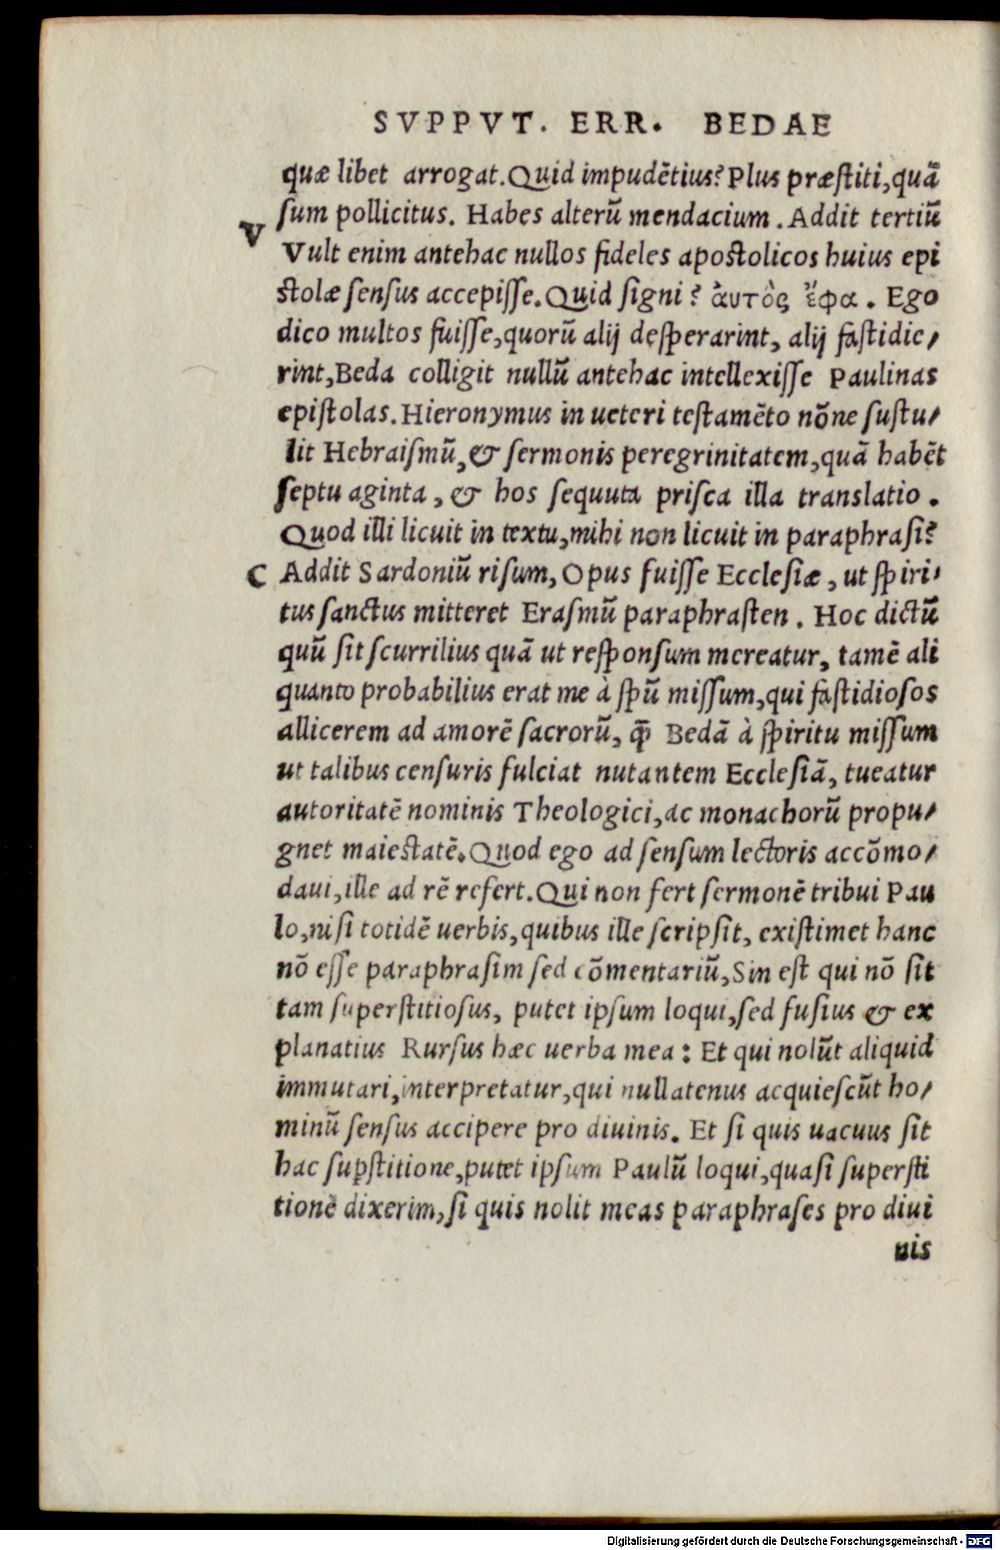 SVPPVT. ERR. BEDAE
quæ libet arrogat. Quid impudẽtius? Plus præſtiti, quã
ſum pollicitus. Habes alterũ mendacium. Addit tertiũ
V
Vult enim antehac nullos fideles apostolicos huius epi
stolæ ſenſus accepiſſe. Quid ſigni? ἀυτὸς ἔφα. Ego
dico multos fuiſſe, quorũ alij deſperarint, alij faſtidie/
rint, Beda colligit nullũ antehac intellexiſſe Paulinas
epiſtolas. Hieronymus in ueteri teſtamẽto nõne ſuſtu/
lit Hebraiſmũ, & ſermonis peregrinitatem, quã habẽt
ſeptuaginta, & hos ſequuta priſca illa translatio.
Quod illi licuit in textu, mihi non licuit in paraphraſi?
C
Addit Sardoniũ riſum, Opus fuiſſe Eccleſiæ, ut ſpiri/
tus ſanctus mitteret Eraſmũ paraphraſten. Hoc dictũ
quũ ſit ſcurrilius quã ut reſponſum mereatur, tamẽ ali
quanto probabilius erat me à ſpũ miſſum, qui faſtidioſos
allicerem ad amorẽ ſacrorũ, q̃ Bedã à ſpiritu miſſum
ut talibus cenſuris fulciat nutantem Eccleſiã, tueatur
autoritatẽ nominis Theologici, ac monachorũ propu/
gnet maiestatẽ. Quod ego ad ſenſum lectoris accõmo/
daui, ille ad rẽ refert. Qui non fert ſermonẽ tribui Pau
lo, niſi totidẽ uerbis, quibus ille ſcripſit, exiſtimet hanc
nõ eſſe paraphraſim ſed cõmentariũ, Sin est qui nõ ſit
tam ſuperſtitioſus, putet ipſum loqui, ſed fuſius & ex
planatius Rurſus hæc uerba mea: Et qui nolũt aliquid
immutari, interpretatur, qui nullatenus acquieſcũt ho/
minũ ſenſus accipere pro diuinis. Et ſi quis uacuus ſit
hac ſuꝑſtitione, putet ipſum Paulũ loqui, quaſi ſuperſti
tionẽ dixerim, ſi quis nolit meas paraphraſes pro diui
nis
Digitalisierung gefördert durch die Deutsche Forschungsgemeinschaft - DFG